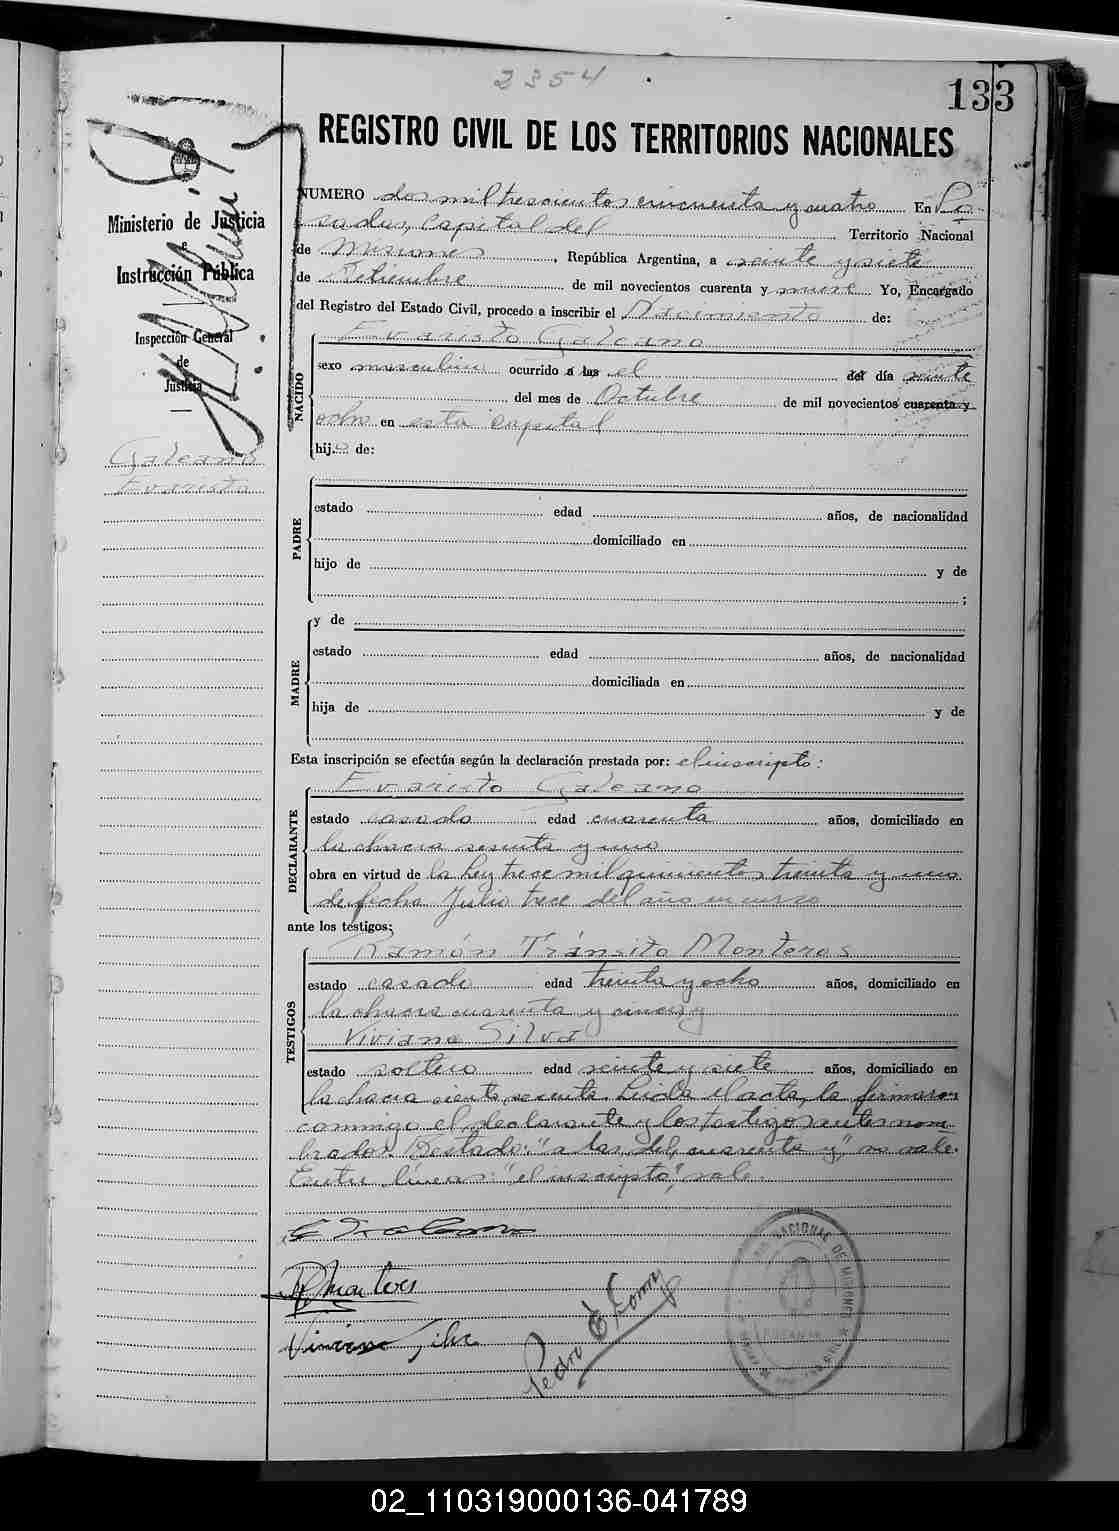 2354
133
REGISTRO CIVIL DE LOS TERRITORIOS NACIONALES
Ministerio de Justicia
e
Instrucción Pública
Inspección General
de
Justicia
Galeano
Evaristo
NUMERO dos mil trescientos cincuenta y cuatro En Po
sadas, capital del Territorio Nacional
de Misiones, República Argentina, a veinte y siete
de Setiembre de mil novecientos cuarenta y nueve Yo, Encargado
del Registro del Estado Civil, procedo a inscribir el Nacimiento de:
NACIDO
Evaristo Galeano
sexo masculino ocurrido a las el del día veinte
del mes de Octubre de mil novecientos cuarenta y
ocho en esta capital
hijo de:
PADRE
estado edad años, de nacionalidad
domiciliado en
hijo de y de
;
MADRE
y de
estado edad años, de nacionalidad
domiciliada en
hija de y de
Esta inscripción se efectúa según la declaración prestada por: el inscripto:
DECLARANTE
Evaristo Galeano
estado casado edad cuarenta años, domiciliado en
la chacra sesenta y uno
obra en virtud de la Ley trece mil quinientos treinta y uno
de fecha Julio trece del año en curso
ante los testigos:
TESTIGOS
Ramón Tránsito Monteros
estado casado edad treinta y ocho años, domiciliado en
la chacra cuarenta y cinco y
Viviano Silva
estado soltero edad veinte y siete años, domiciliado en
la chacra ciento sesenta. Leída el acta, la firmaron
conmigo el declarante y los testigos antes nom
brados. Testado: "a las, del, cuarenta y" no vale.
Entre líneas: "el inscripto", vale.
Viviano Silva
Pedro E.
NACIONAL DE MISIONES
POSADAS
02_110319000136-041789